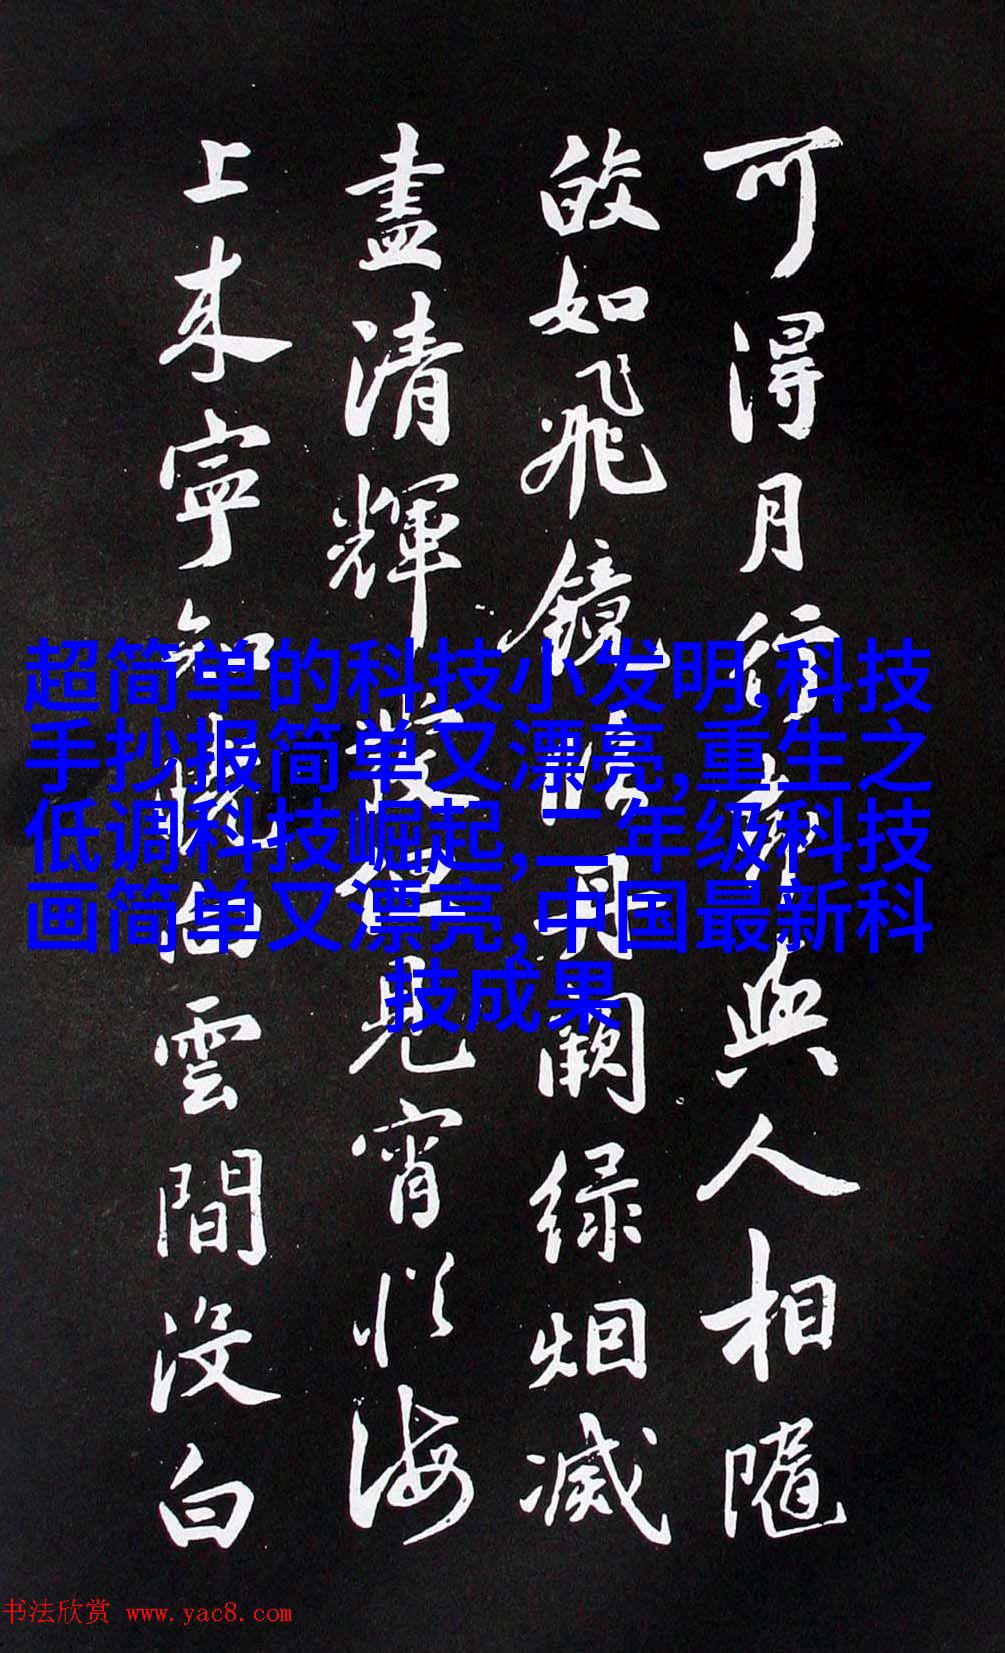 可得月行却與人相隨
皎如飛鏡臨丹闕綠烟滅
盡清輝發但見宵從海
上來寧知曉向雲間沒白
超简单的科技小发明,科技
手抄报简单又漂亮,重生之
低调科技崛起,二年级科技
画简单又漂亮,中国最新科
技成果
书法欣赏 www.yac8.com